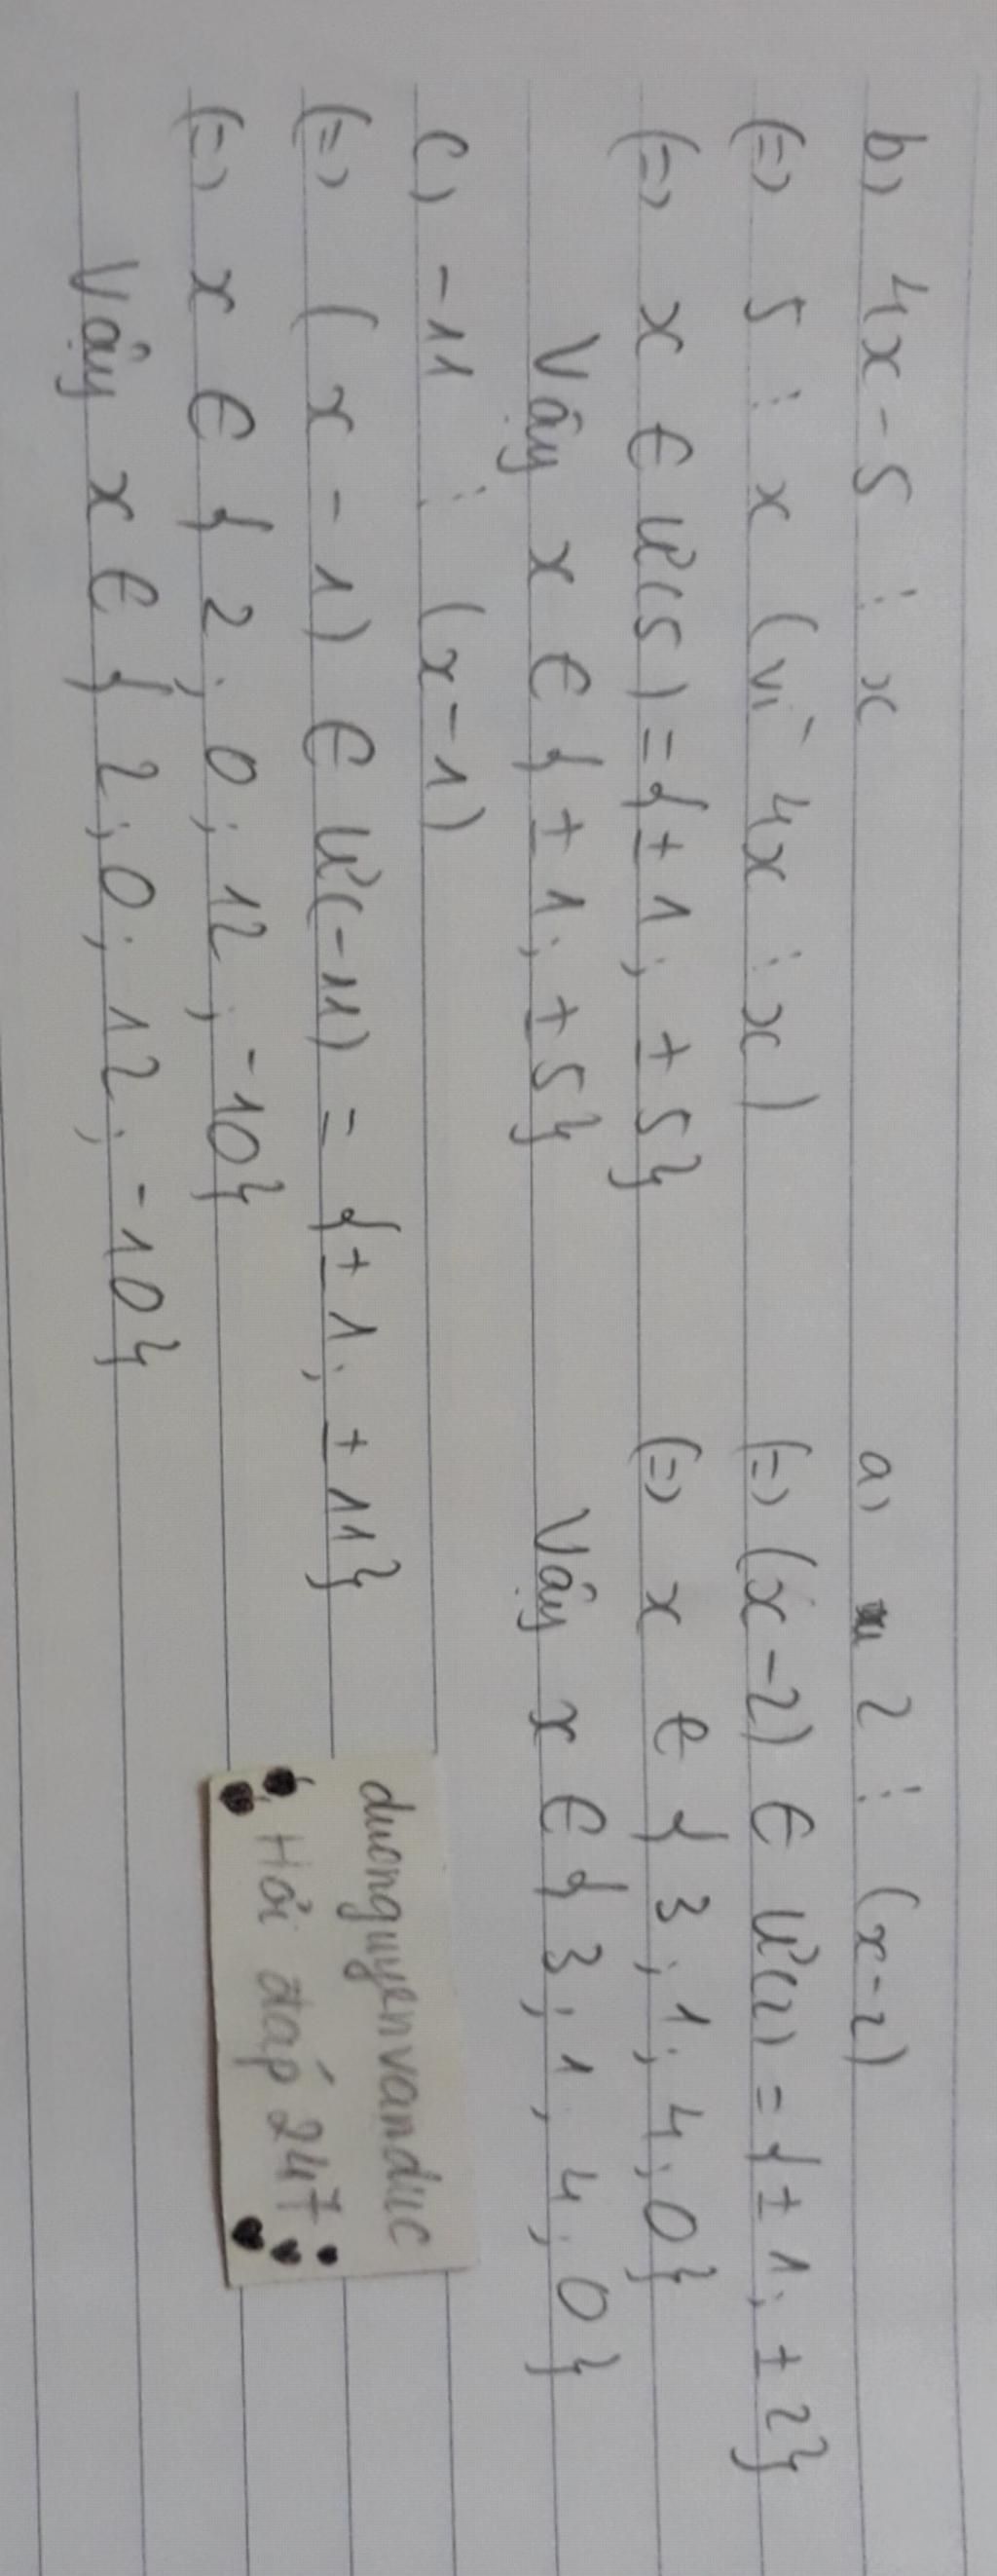 b) 4x - 5 ⋮ x
(=) 5 ⋮ x (vì 4x ⋮ x)
(=) x ∈ Ư(5) = {± 1; ± 5}
Vậy x ∈ {± 1; ± 5}
c) -11 ⋮ (x-1)
(=) (x - 1) ∈ Ư(-11) = {± 1; ± 11}
(=) x ∈ {2; 0; 12; -10}
Vậy x ∈ {2; 0; 12; -10}
a) 2 ⋮ (x-2)
(=) (x-2) ∈ Ư(2) = {± 1; ± 2}
(=) x ∈ {3; 1; 4; 0}
Vậy x ∈ {3; 1; 4; 0}
duongnguyenvanduc
Hỏi đáp 247